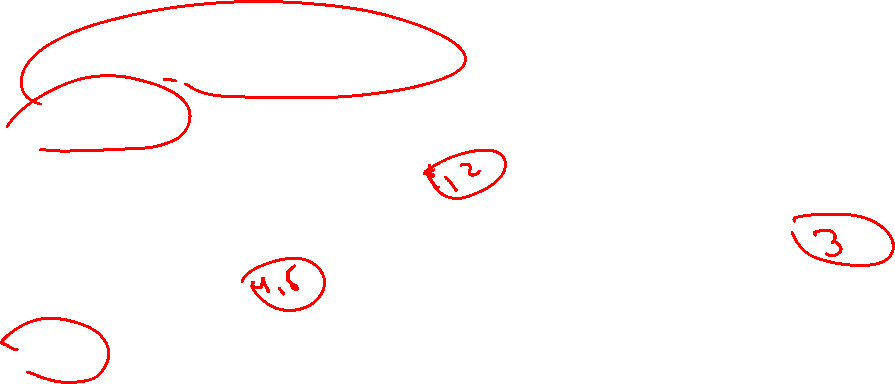 1 2
3
4,6